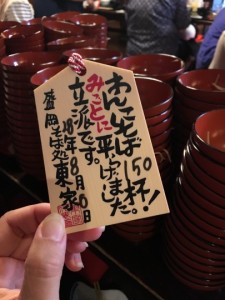 わんこそば
150杯!
みごとに平げました。
立派です。
'18年8月10日
盛岡そば処東家